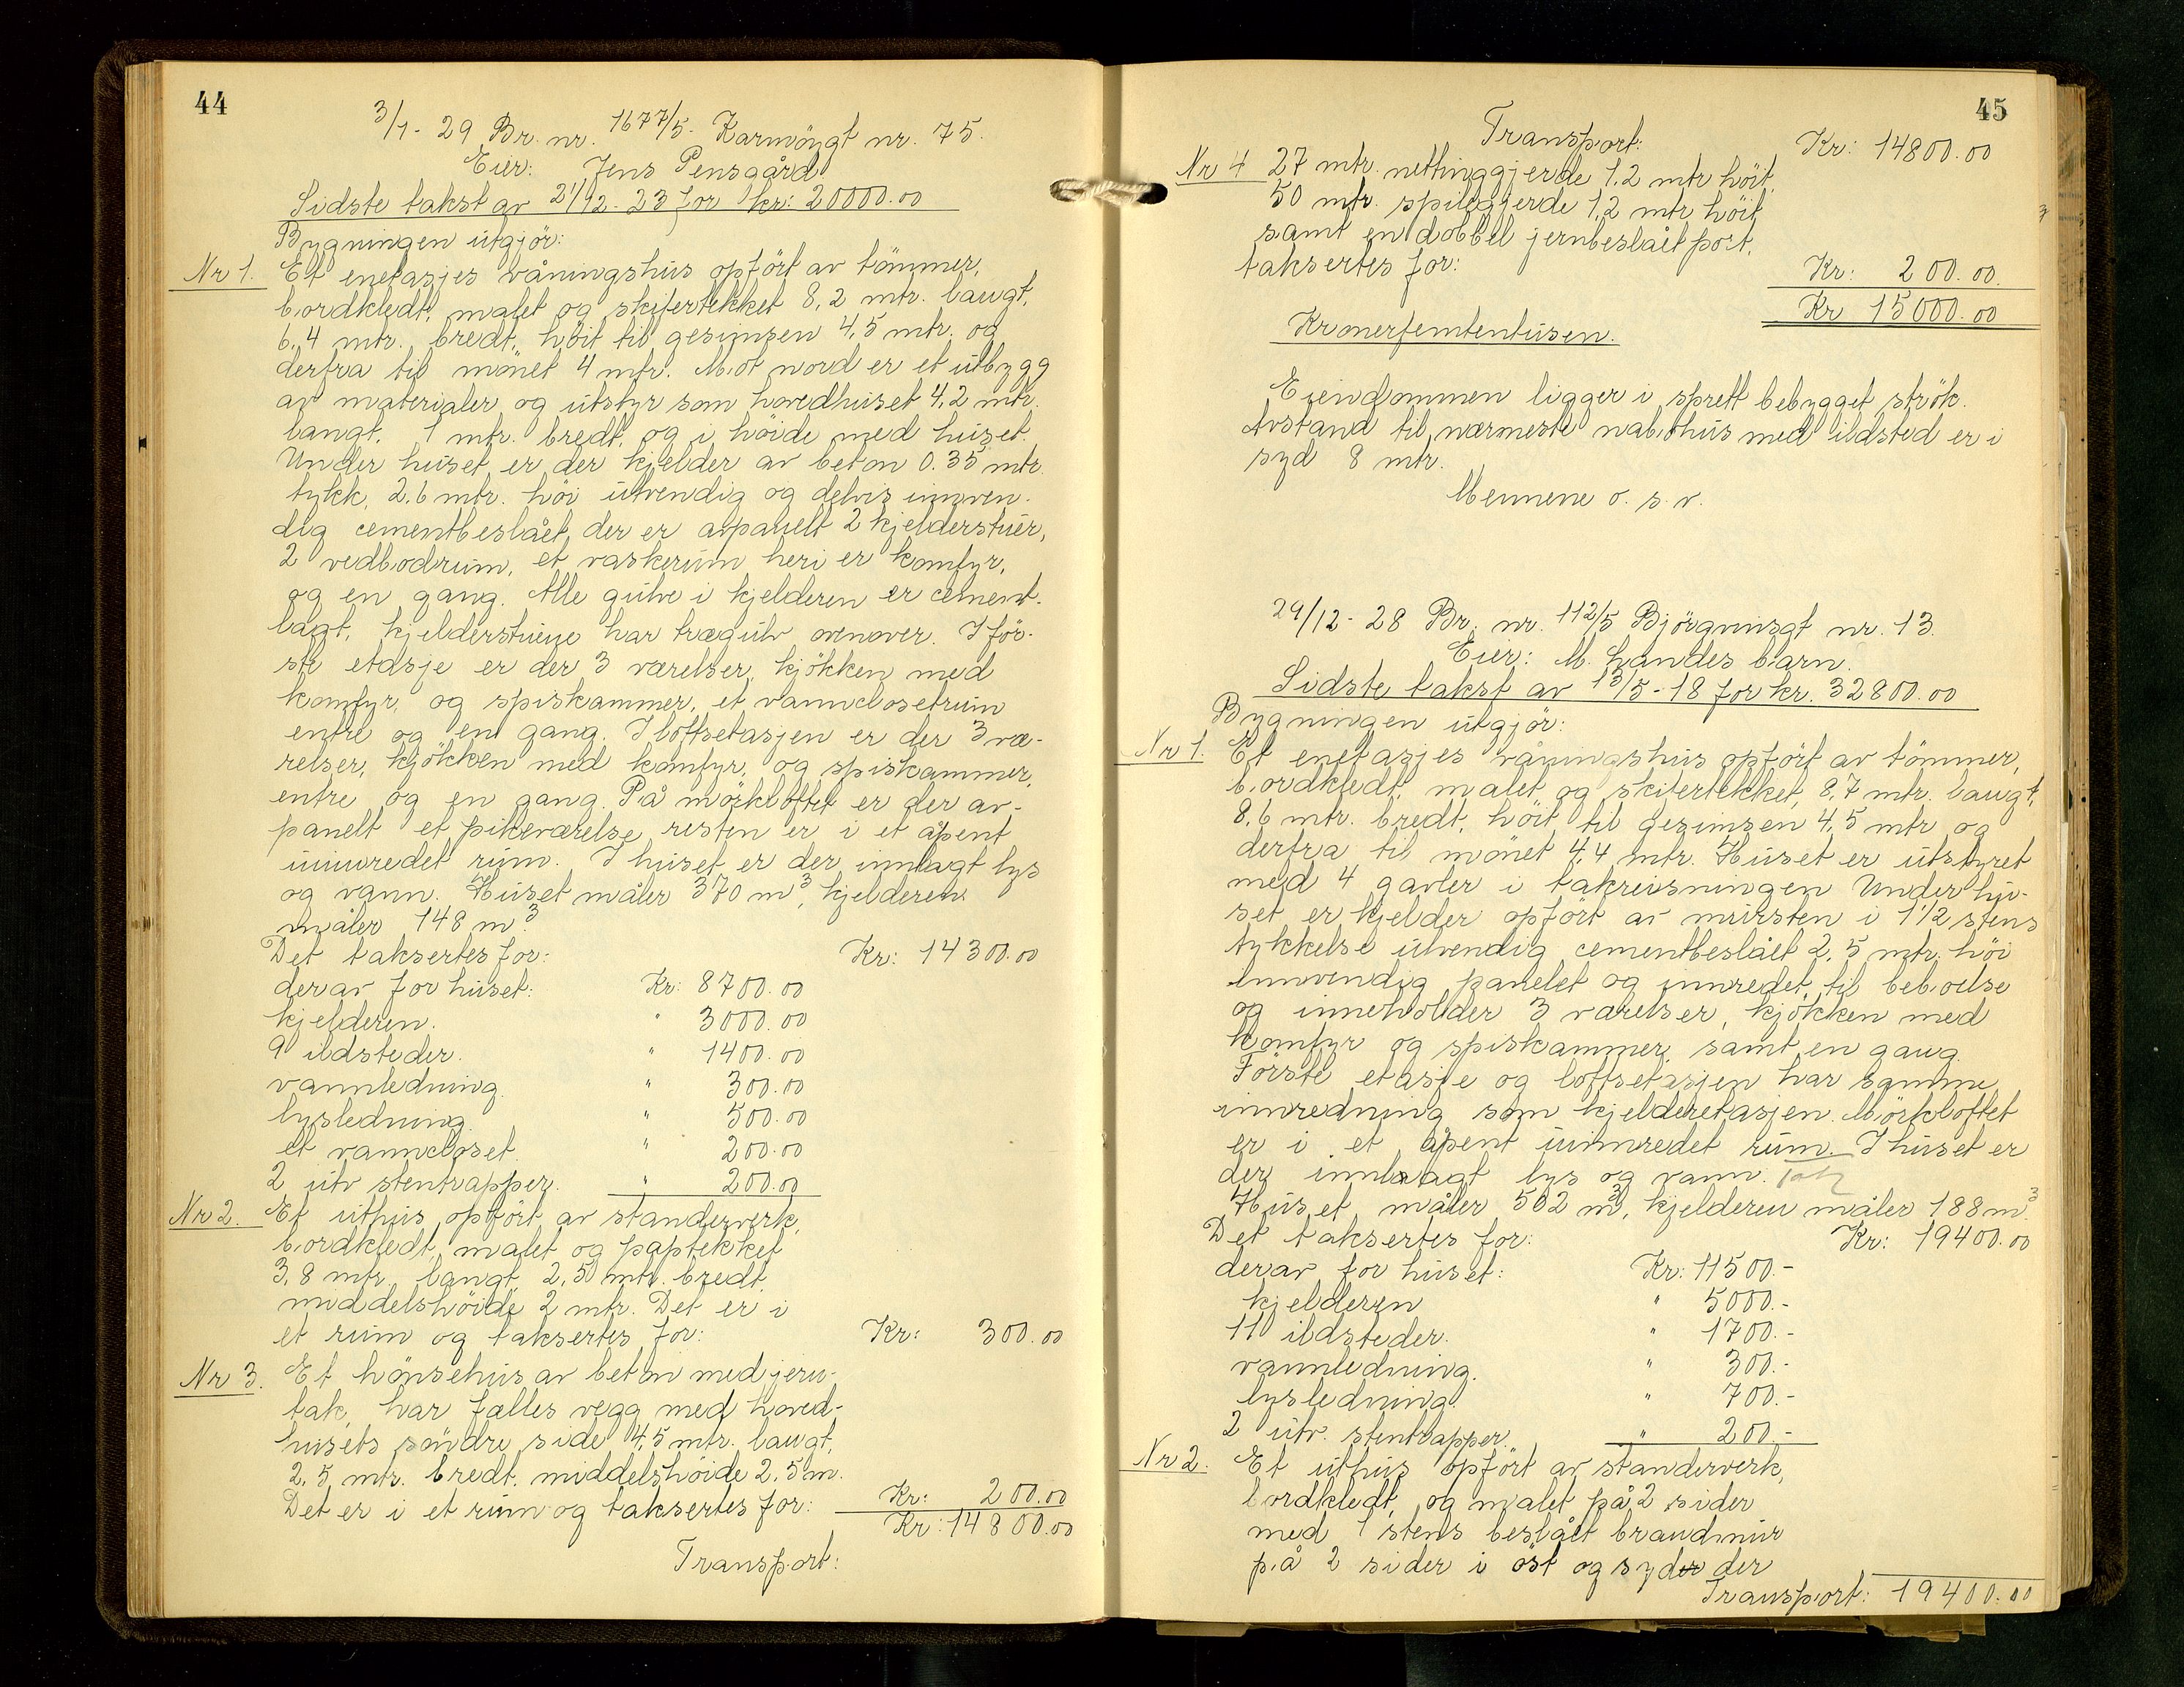 44
3/1-29 Br. nr. 1677/5- Karmöygt nr. 75.
Eier: Jens Pensgård.
Sidste takst av 21/12-23 for kr: 20000.00
Bygningen utgjör:
Nr 1. Et enetasjes våningshus opfört av tömmer,
bordkledt, malet og skifertekket 8,2 mtr. langt,
6,4 mtr. bredt, höit til gesimsen 4,5 mtr. og
derfra til mönet 4 mtr. Mot nord er et utbygg
av materialer og utstyr som hovedhuset 4,2 mtr.
langt, 1 mtr. bredt, og i höide med huset.
Under huset er der kjelder av beton 0.35 mtr.
tykk, 2,6 mtr. höi utvendig og delvis innven-
dig cementbeslået, der er avpanelt 2 kjelderstuer,
2 vedbodrum, et vaskerum heri er komfyr,
og en gang. Alle gulve i kjelderen er cement-
lagt, kjelderstuene har trægulv ovenover. I för-
ste etasje er der 3 værelser, kjökken med
komfyr, og spiskammer, et vannclosetrum
entre og en gang. I loftsetasjen er der 3 væ-
relser, kjökken med komfyr, og spiskammer,
entre og en gang. På mörkloftet er der av-
panelt et pikeværelse, resten er i et åpent
uinnredet rum. I huset er der innlagt lys
og vann. Huset måler 370 m³, kjelderen
måler 148 m³
Det taksertes for: Kr: 14300.00
derav for huset: Kr: 8700.00
kjelderen. " 3000.00
9 ildsteder. " 1400.00
vannledning. " 300.00
lysledning. " 500.00
et vanncloset. " 200.00
2 utv stentrapper. " 200.00
Nr 2. Et uthus opfört av standerverk,
bordkledt, malet og paptekket
3,8 mtr. langt, 2,50 mtr. bredt,
middelshöide 2 mtr. Det er i
et rum og taksertes for: Kr: 300.00
Nr 3. Et hönsehus av beton med jern-
tak, har fælles vegg med hoved-
husets söndre side 4,5 mtr. langt,
2,5 mtr. bredt, middelshöide 2,5 m.
Det er i et rum og taksertes for: Kr: 200.00
Kr: 14800.00
Transport:
45
Transport: Kr: 14800.00
Nr 4 27 mtr. nettinggjerde 1,2 mtr höit,
50 mtr. spilegjerde 1,2 mtr, höit
samt en dobbel jernbeslået port,
taksertes for: Kr: 200.00.
Kr 15000.00
Kronerfemtentusen.
Eiendommen ligger i sprett bebygget strök.
Avstand til nærmeste nabohus med ildsted er i
syd 8 mtr.
Mennene o. s. v.
29/12-28 Br. nr. 112/5 Björgvinsgt nr. 13.
Eier: M. Landes barn.
Sidste takst av 13/5-18 for kr. 32800.00
Bygningen utgjör:
Nr 1. Et enetasjes våningshus opfört av tömmer,
bordkledt, malet og skifertekket, 8,7 mtr. langt,
8,6 mtr. bredt, höit til gesimsen 4,5 mtr og
derfra til mönet 4,4 mtr. Huset er utstyret
med 4 gavler i takreisningen Under hu-
set er kjelder opfört av mursten i 1 1/2 stens
tykkelse utvendig cementbeslået 2,5 mtr. höi
Innvendig panelet og innredet til beboelse
og inneholder 3 værelser, kjökken med
komfyr og spiskammer, samt en gang.
Förste etasje og loftsetasjen har samme
innredning som kjelderetasjen. Mörkloftet
er i et åpent uinnredet rum. I huset er
der innlagt lys og vann.
Huset måler 502 m³, kjelderen måler 188 m³.
Det taksertes for: Kr: 19400.00
derav for huset: Kr: 11500.-
kjelderen " 5000.-
11 ildsteder. " 1700.-
vannledning. " 300.-
lysledning. " 700.-
2 utv. stentrapper. " 200.-
Nr 2. Et uthus opfört av standerverk,
bordkledt, og malet på 2 sider
med 1 stens beslået brandmur
på 2 sider i öst og syd der
Transport: 19400.00